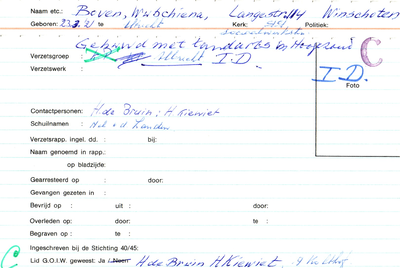 Naam etc.: Boven, Wubchiena, Langestr 114 Winschoten
Geboren: 23.7.21 te Utrecht Kerk: Politiek:
Gehuwd met tandarts in Hoogezand
Verzetsgroep : Utrecht I.D.
Verzetswerk :
I.D.
Foto
C
Contactpersonen: H de Bruin; H. Kiewiet
Schuilnamen : v.d. Landen
Verzetsrapp. ingel. dd. : bij:
Naam genoemd in rapp.:
op bladzijde:
Gearresteerd op : door:
Gevangen gezeten in :
Bevrijd op : uit : door:
Overleden op : door: te :
Begraven op : te :
Ingeschreven bij de Stichting 40/45:
C Lid G.O.I.W. geweest: Ja Neen H de Bruin H Kiewiet